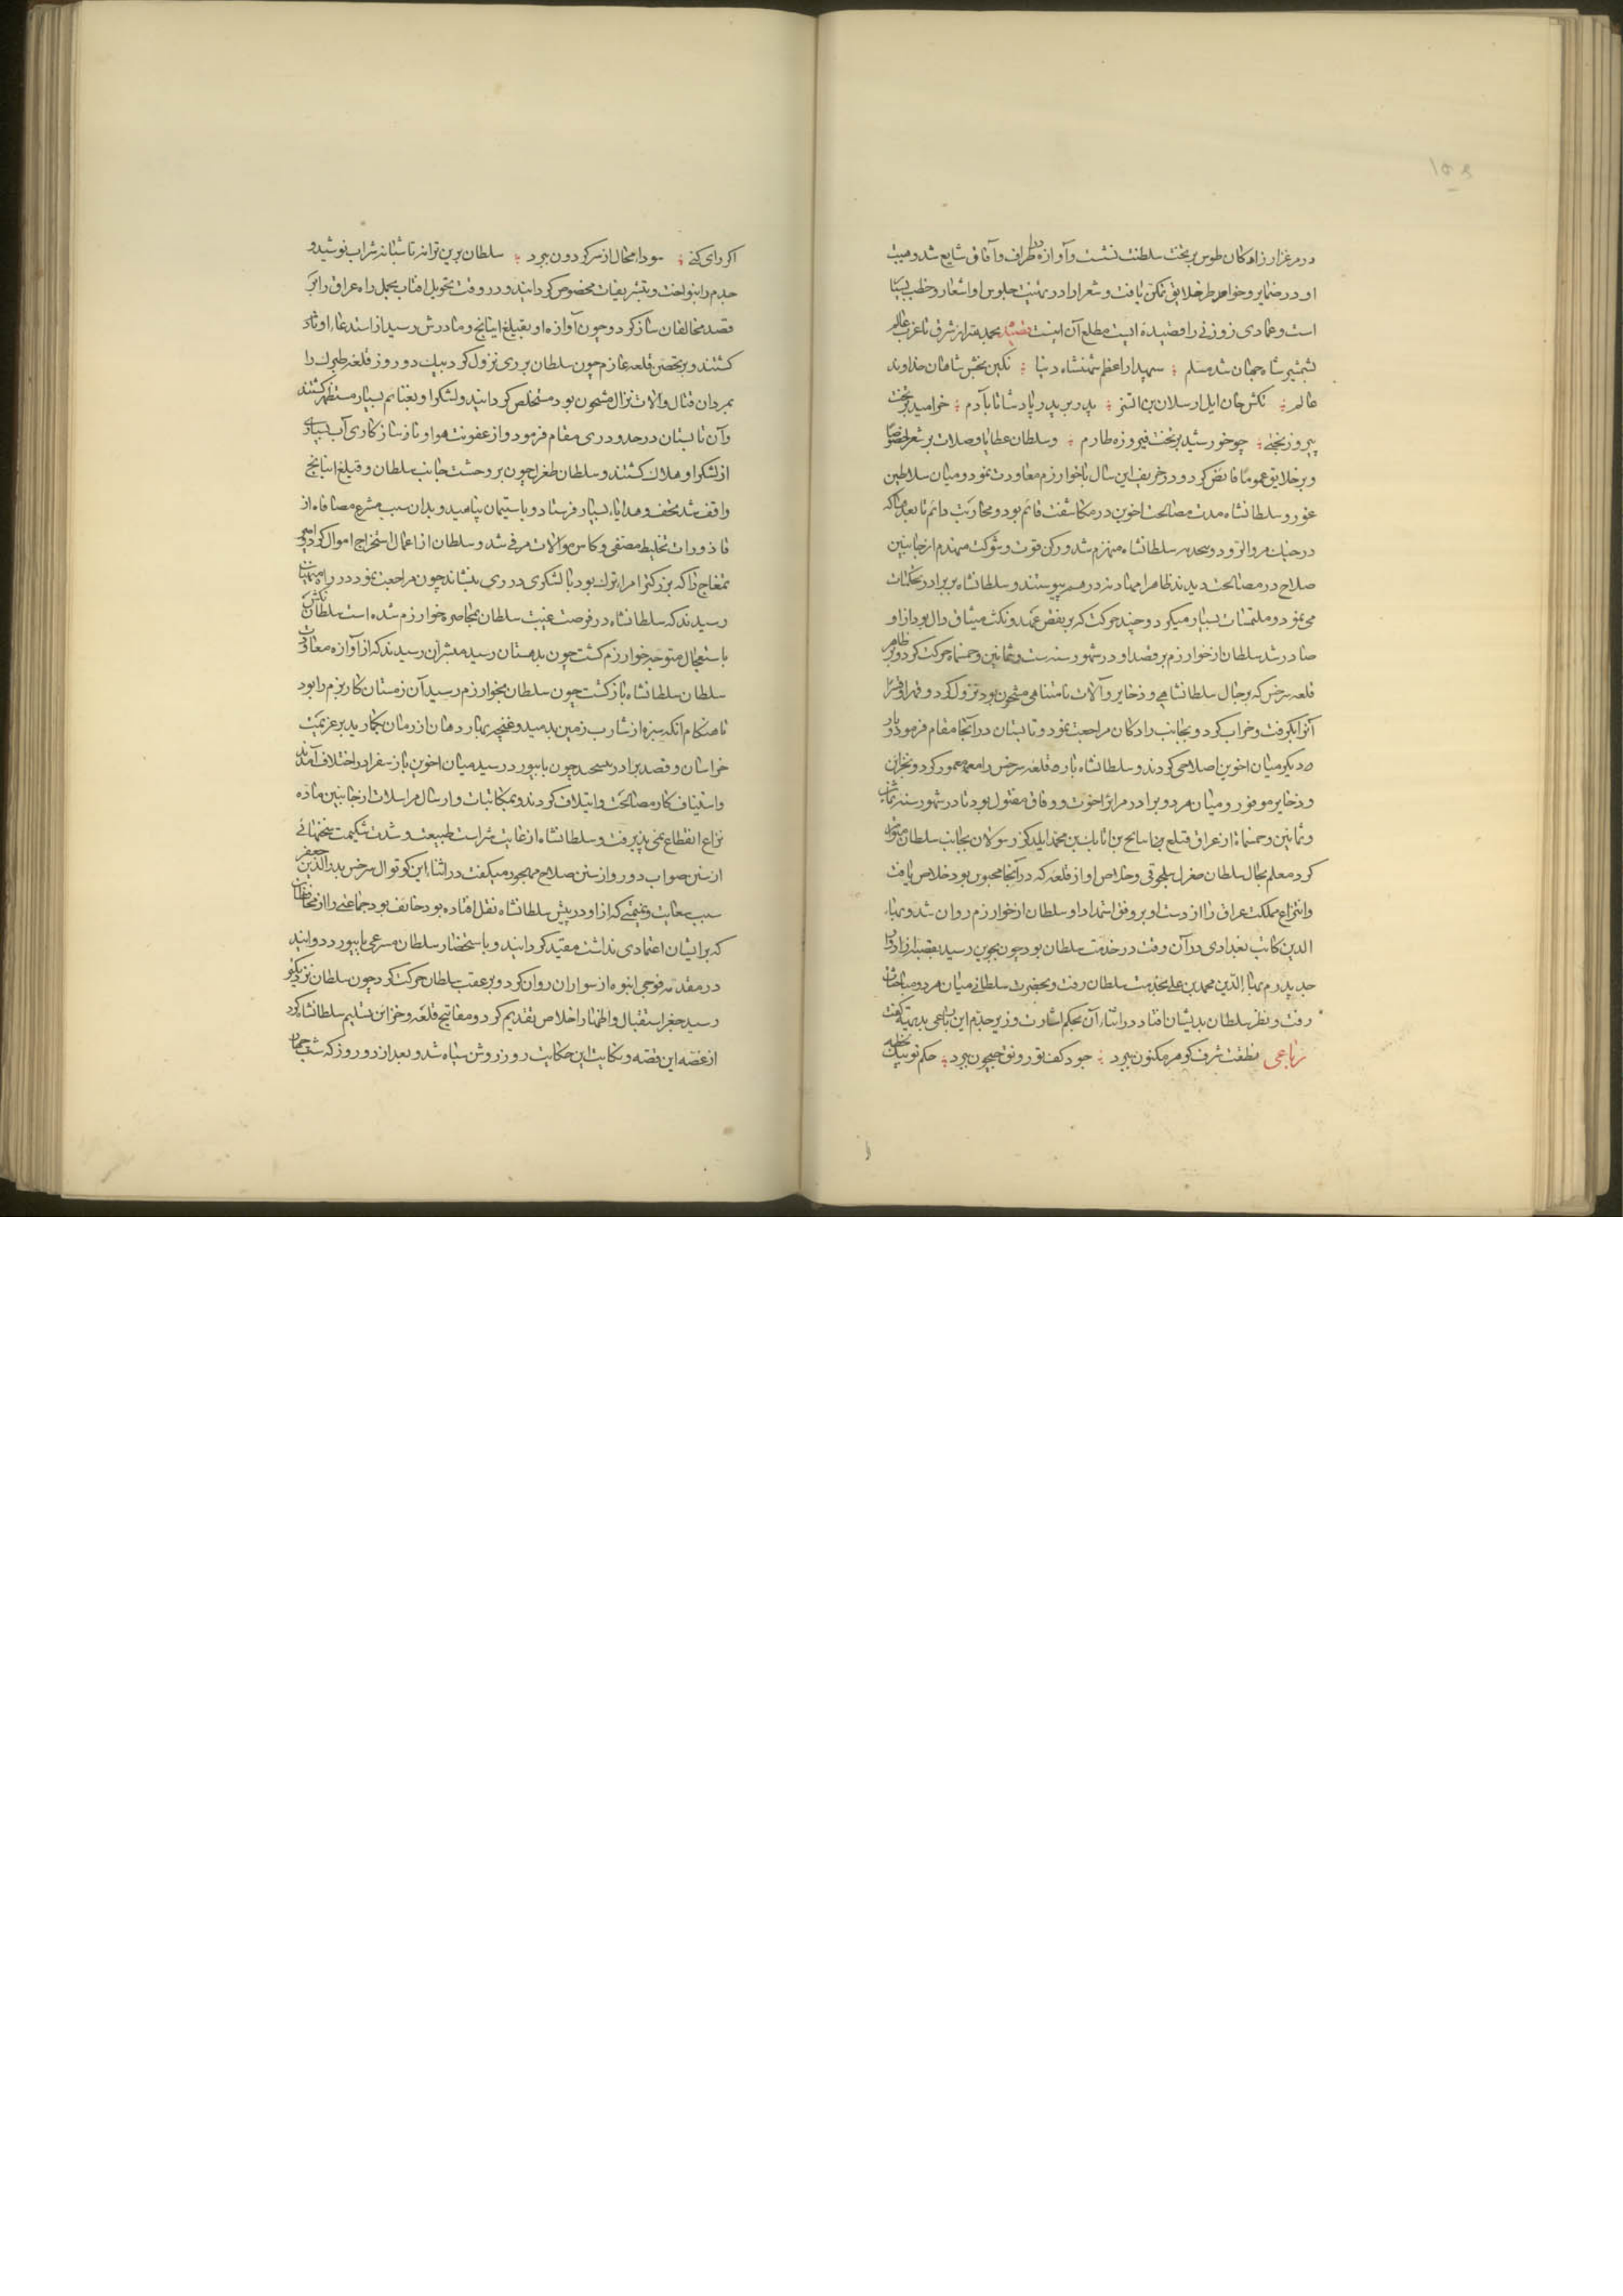 در مرغزار رادکان طوس بر تخت سلطنت نشست و آوازه در اطراف و آفاق شایع شد و هیبت
او در ضمایر و خواطر خلایق تمکن یافت و شعرا را در تهنیت جلوس او اشعار و خطب بسیار
است و عمادی زوزنی را قصیده ایست مطلع آن اینست قصیده بحمدالله از شرق تا غرب عالم
بشمشیر شاه جهان شد مسلم سپهدار اعظم شهنشاه دنیا نکین بخش شاهان خداوند
عالم تکش خان ایل ارسلان بن اتسز پدر بر پدر پادشا تا بآدم خرامید بر تخت
پیروز بختی چو خورشید بر تخت فیروزه طارم و سلطان عطایا و صلات بر شعرا خصوصا
و بر خلایق عموما فائض کرد و در خریف این سال با خوارزم معاودت نمود و میان سلاطین
غور و سلطانشاه مدت مصالحت اخوین در مکاشفت قائم بود و محاربت دائم تا بعد ماکه
در جنک مروالرود و پنجدیه سلطانشاه منهزم شد و رکن قوت و شوکت منهدم از جانبین
صلاح در مصالحت دیدند ظاهرا مهادنه در هم پیوستند و سلطانشاه بر برادر تحکمات
می نمود و ملتمسات بسیار میکرد و چند حرکت که بر نقض عهد و نکث میثاق دال بود از او
صادر شد سلطان از خوارزم بر قصد او در شهور سنه ست و ثمانین و خمسمائة حرکت کرد و بر ظاهر
قلعه سرخس که برجال سلطانشاهی و ذخایر و آلات نامتناهی مشحون بود نزول کرد و قهرا و قسرا
آنرا بگرفت و خراب کرد و بجانب رادکان مراجعت نمود و تابستان در آنجا مقام فرمود و بار
دیکر میان اخوین اصلاحی کردند و سلطانشاه باره قلعه سرخس را معمور کرد و بخزاین
و ذخایر موفور و میان هر دو برادر مرایر اخوت و وفاق مفتول بود تا در شهور سنه ثمان
و ثمانین و خمسمائة از عراق قتلغ اینانج بن اتابک بن محمد ایلدکز رسولان بجانب سلطان متواتر
کرد معلم بحال سلطان طغرل سلجوقی و خلاص او از قلعه که در آنجا محبوس بود خلاص یافت
و انتزاع مملکت عراق را از دست او بر وفق استمداد او سلطان از خوارزم روان شد و بهاء
الدین کاتب بغدادی در آن وقت در خدمت سلطان بود چون بجوین رسید بقصبه ازادوار
جد پدرم بهاءالدین محمد بن علی بخدمت سلطان رفت و بحضرت سلطانی میان هر دو مباحثات
رفت و نظر سلطان بدیشان افتاد در اثناء آن بحکم اشارت وزیر جدم این رباعی بدیهه گفت
رباعی لطفت شرف کوهر مکنون ببرد جود کف تو رونق جیحون ببرد حکم تو بیک لحظه
اکر رای کنی سودا محال از سر کردون ببرد سلطان برین ترانه تا شبانه شراب نوشید و
جدم را بنواخت و بتشریفات مخصوص کردانید و در وقت تحویل افتاب بحمل راه عراق را بر
قصد مخالفان ساز کرد و چون آوازه او بقتلغ اینانج و مادرش رسید از استدعاء او نادم
کشتند و بر تحصن قلعه عازم چون سلطان بری نزول کرد بیک دو روز قلعه طبرک را
بمردان قتال و آلات نزال مشحون بود مستخلص کردانید و لشکر او بغنایم بسیار مستظهر کشتند
و آن تابستان در حدود ری مقام فرمود و از عفونت هوا و ناسازکاری آب بسیاری
از لشکر او هلاک کشتند و سلطان طغرل چون بر وحشت جانب سلطان و قتلغ اینانج
واقف شد تحف و هدایا بسیار فرستاد و باستیمان پناهید و بدان سبب مشرع مصافاة از
قاذورات تخلیط مصفی و کاس موالات مرفی شد و سلطان از اعمال استخراج اموال کرد و امیر
تمغاج را که بزرکتر امرا ترک بود با لشکری در ری بنشاند چون مراجعت نمود در راه منهیان
رسیدند که سلطانشاه در فرصت غیبت سلطان بمحاصره خوارزم شده است سلطان تکش
باستعجال متوجه خوارزم کشت چون بدهستان رسید مبشران رسیدند که از آوازه معاودت
سلطان سلطانشاه بازکشت چون سلطان بخوارزم رسید آن زمستان کار بزم را بود
تا هنکام انکه سبزه از شارب زمین بدمید و غنچه بهار دهان از زمان بکمارید بر عزیمت
خراسان و قصد برادر بسیجید چون بابیورد رسید میان اخوین باز سفرا در اختلاف آمدند
و استیناف کار مصالحت و ایتلاف کردند و بمکاتبات و ارسال مراسلات از جانبین ماده
نزاع انقطاع نمی پذیرفت و سلطانشاه از غایت شراست طبیعت و شدت شکیمت سخنهائی
از سنن صواب دور و از سنن صلاح مهجور میکفت در اثناء این کوتوال سرخس بدرالدین جعفر
سبب سعایت و نمیمتی که از او در پیش سلطانشاه نقل افتاده بود خائف بود جماعتی را از محافظان
که بر ایشان اعتمادی نداشت مقید کردانید و باستحضار سلطان مسرعی بابیورد دوانید
در مقدمه فوجی انبوه از سواران روان کرد و بر عقب سلطان حرکت کرد چون سلطان نزدیکتر
رسید جعفر استقبال و اظهار اخلاص تقدیم کرد و مفاتیح قلعه و خزاین تسلیم سلطانشاه کرد
از غصه این قصه و نکایت این حکایت روز روشن سیاه شد و بعد از دو روز که شب جهان